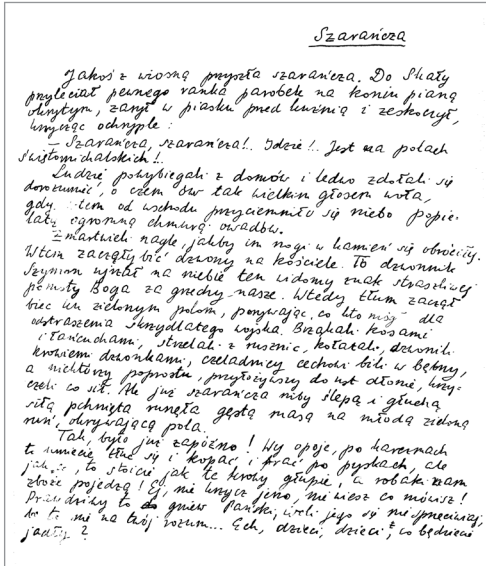 Szarańcza
Jakoś z wiosną przyszła szarańcza. Do Skały
przyleciał pewnego ranka parobek na koniu pianą
okrytym, zarył w piasku przed kuźnią i zeskoczył,
krzycząc ochryple:
– Szarańcza, szarańcza!.. Idzie!. Jest na polach
świętomichalskich!..
Ludzie powybiegali z domów i ledwo zdołali się
dorozumieć, o czem ów tak wielkim głosem woła,
gdy tem od wschodu przyciemniło się niebo popie-
latą ogromną chmurą owadów.
Zmartwieli nagle, jakby im nogi w kamień się obróciły.
Wtem zaczęły bić dzwony na kościele. To dzwonnik
Szymon ujrzał na niebie ten widomy znak straszliwej
pomsty Boga za grzechy nasze. Wtedy tłum zaczął
biec ku zielonym polom, porywając, co kto mógł dla
odstraszenia skrzydlatego wojska. Brząkali kosami
i łańcuchami, strzelali z rusznic, kołatali, dzwonili
krowiemi dzwonkami, czeladnicy cechowi bili w bębny,
a niektórzy poprostu, przyłożywszy do ust dłonie, krzy-
czeli co sił. Ale już szarańcza niby ślepą i głuchą
siłą pchnięta runęła gęstą masą na młodą zieloną
ruń, okrywającą pola.
Tak, było już zapóźno! Wy opoje, po karczmach
to umiecie tłuc się i kopać i prać po pyskach, ale
jak , to stoicie jak te krowy głupie, a robaki nam
zboże pojedzą! Ej, nie krzycz jeno, nie wiesz co mówisz!
Prawdziwy to gniew Pański, woli jego się nie sprzeciwiaj,
bo to nie na twój rozum... Ech, dzieci, dzieci, co będziecie
jadły?